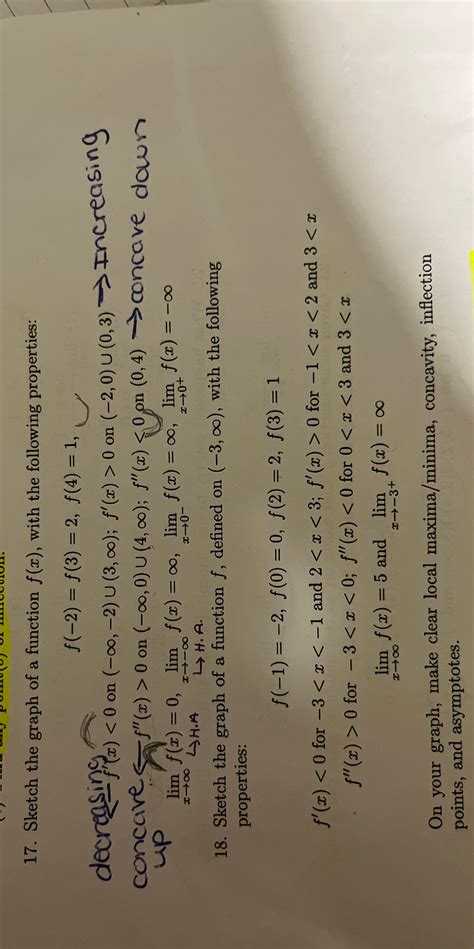 17. Sketch the graph of a function f(x), with the following properties:
f(−2) = f(3) = 2, f(4) = 1,
decreasing f′(x) < 0 on (−∞, −2) ∪ (3, ∞); f′(x) > 0 on (−2, 0) ∪ (0, 3) → Increasing
concave up ← f″(x) > 0 on (−∞, 0) ∪ (4, ∞); f″(x) < 0 on (0, 4) → concave down
lim x→∞ f(x) = 0, lim x→−∞ f(x) = ∞, lim x→0⁻ f(x) = ∞, lim x→0⁺ f(x) = −∞
↳ H.A ↳ H.A.
18. Sketch the graph of a function f, defined on (−3, ∞), with the following
properties:
f(−1) = −2, f(0) = 0, f(2) = 2, f(3) = 1
f′(x) < 0 for −3 < x < −1 and 2 < x < 3; f′(x) > 0 for −1 < x < 2 and 3 < x
f″(x) > 0 for −3 < x < 0; f″(x) < 0 for 0 < x < 3 and 3 < x
lim x→∞ f(x) = 5 and lim x→−3⁺ f(x) = ∞
On your graph, make clear local maxima/minima, concavity, inflection
points, and asymptotes.